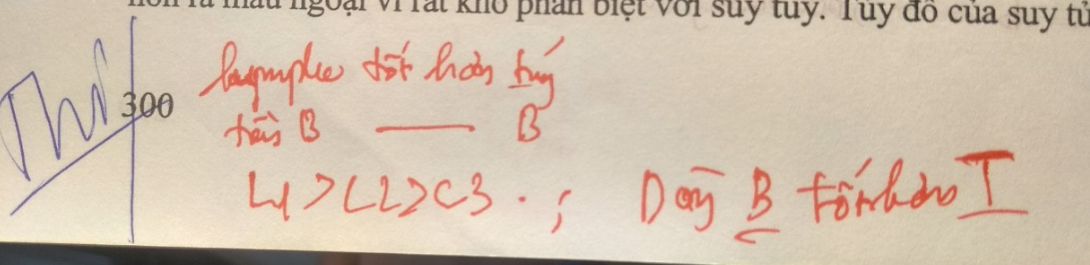 non ra máu ngoại vi rất khó phân biệt với suy tủy. Tủy đồ của suy tủ
Thi
300
lympho tốt hơn tủy
tiền B —— B
L1 > L2 > L3 . ; Dòng B tốt hơn T